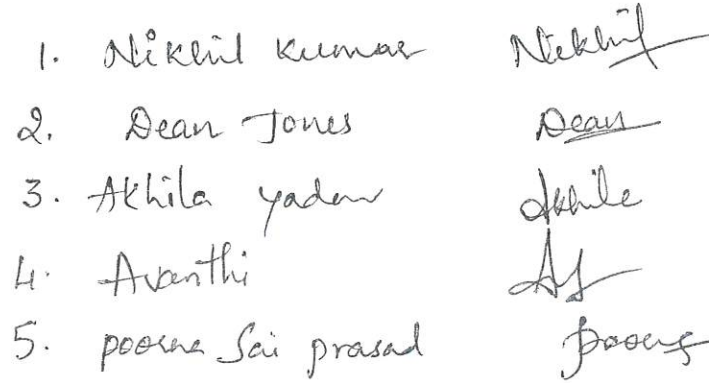 1. Nikhil Kumar Nikhil
2. Dean Jones Dean
3. Akhila yadav Akhila
4. Avanthi
5. poorna Sai prasad Poorna